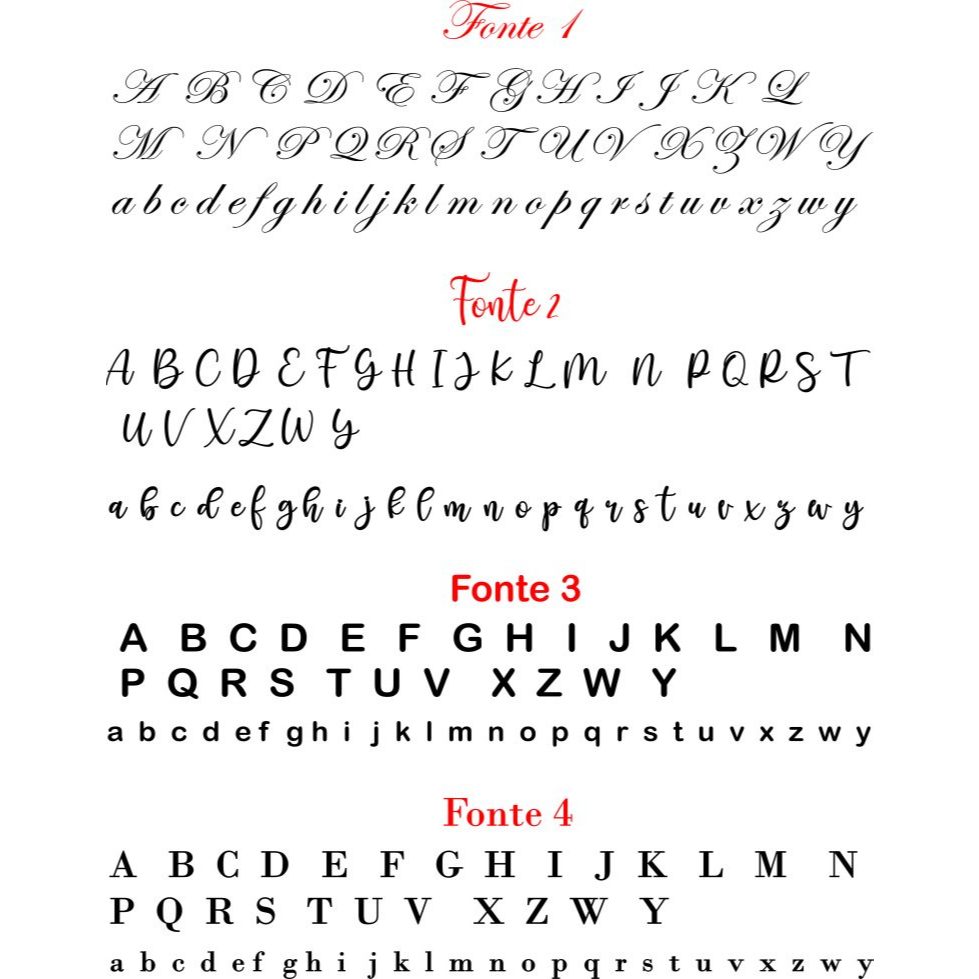 Fonte 1
A B C D E F G H I J K L
M N P Q R S T U V X Z W Y
a b c d e f g h i l j k l m n o p q r s t u v x z w y
Fonte 2
A B C D E F G H I J K L M N P Q R S T
U V X Z W Y
a b c d e f g h i j k l m n o p q r s t u v x z w y
Fonte 3
A B C D E F G H I J K L M N
P Q R S T U V X Z W Y
a b c d e f g h i j k l m n o p q r s t u v x z w y
Fonte 4
A B C D E F G H I J K L M N
P Q R S T U V X Z W Y
a b c d e f g h i j k l m n o p q r s t u v x z w y